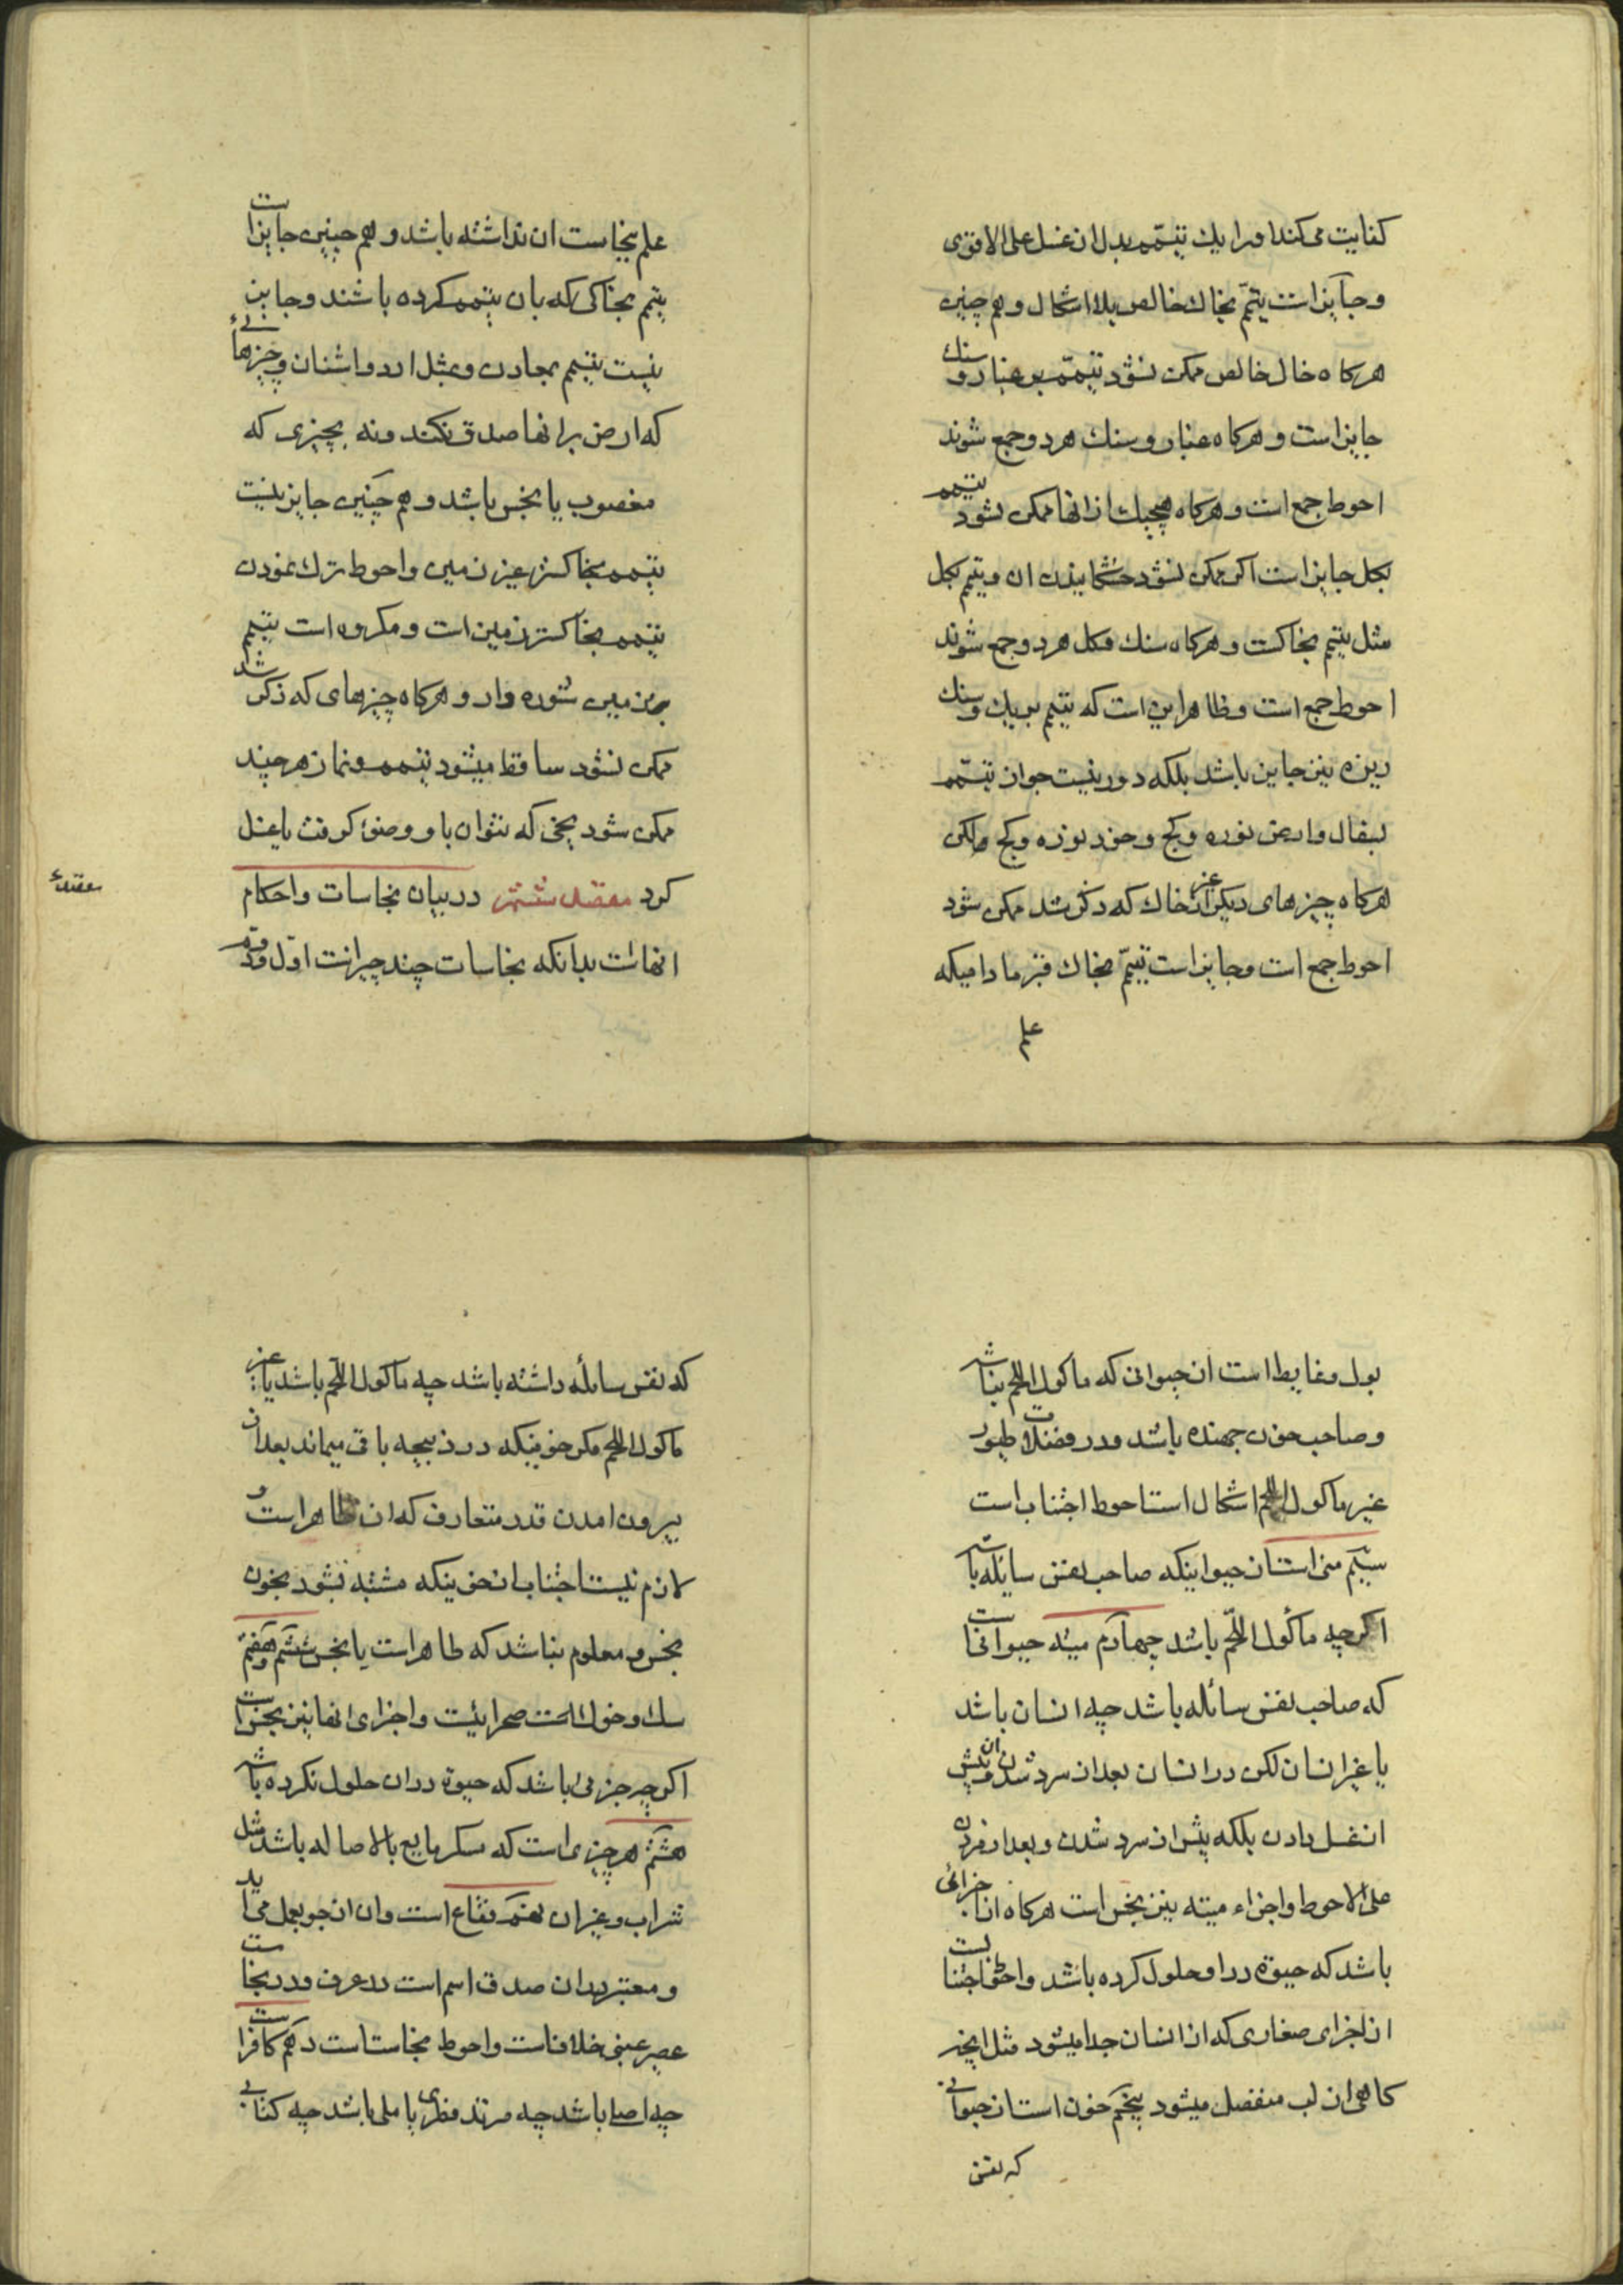 کفایت می‌کند او را یک تیمّم بدل از غسل علی الاقوی
و جایز است تیمّم بخاک خالص بلا اشکال و هم چنین
هرکاه خاک خالص ممکن نشود تیمّم بر غبار و سنک
جایز است و هرکاه غبار و سنک هر دو جمع شوند
احوط جمع است و هرکاه هیچیک از انها ممکن نشود تیمم
بکل جایز است اکر ممکن نشود خشکانیدن ان و تیمم بکل
مثل تیمم بخاکست و هرکاه سنک و کل هر دو جمع شوند
احوط جمع است و ظاهر این است که تیمم بریک و سنک
ریزه نیز جایز باشد بلکه دور نیست جواز تیمّم
بسفال و ارض نوره و کج و خود نوره و کج ولکن
هرکاه چیزهای دیکر از غیر خاک که ذکر شد ممکن شود
احوط جمع است و جایز است تیمّم بخاک قبر مادامیکه
علم
علم بنجاست ان نداشته باشد و هم چنین جایز است
تیمم بخاکی که بان تیمم کرده باشند و جایز
نیست تیمم بمعادن و بمثل ارد و اشنان و چیزهائی
که ارض بر انها صدق نکند و نه بچیزی که
مغصوب یا نجس باشد و هم چنین جایز نیست
تیمم بخاکستر غیر زمین و احوط ترک نمودن
تیمم بخاکستر زمین است و مکروه است تیمم
بر زمین شوره زار و هرکاه چیزهای که ذکر شد
ممکن نشود ساقط میشود تیمم و نماز هرچند
ممکن شود یخی که نتوان با او وضوء کرفت یا غسل
کرد مقصد ششم در بیان نجاسات و احکام
انهاست بدانکه نجاسات چند چیز است اوّل و دویم
بول و غایط است از حیوانی که ماکول اللحم نباشد
و صاحب خون جهنده باشد و در فضلات طیور
غیر ماکول اللحم اشکال است احوط اجتناب است
سیّم منی است از حیوانیکه صاحب نفس سایله باشد
اکرچه ماکول اللّحم باشد چهارم میته حیوانی است
که صاحب نفس سائله باشد چه انسان باشد
یا غیر انسان لکن در انسان بعد از سرد شدن و پیش از
از غسل دادن بلکه پیش از سرد شدن و بعد از مردن
علی الاحوط و اجزاء میته نیز نجس است هرکاه از اجزائی
باشد که حیوة در او حلول کرده باشد و احوط اجتناب است
از اجزای صغاری که از انسان جدا میشود مثل انچه
کاهی از لب منفصل میشود پنجم خون است از حیوانی
که نفس
که نفس سائله داشته باشد چه ماکول اللّحم باشد یا غیر
ماکول اللحم مکر خونیکه در ذبیحه باقی میماند بعد از
بیرون امدن قدر متعارف که ان طاهر است و
لازم نیست اجتناب از خونیکه مشتبه نشود بخون
نجس و معلوم نباشد که طاهر است یا نجس ششم و هفتم
سک و خوک است صحرائیست و اجزای انها نیز نجس است
اکرچه جزئی باشد که حیوة در ان حلول نکرده باشد
هشتم هر چیزی است که مسکر مایع بالاصاله باشد مثل
شراب و غیر ان نهم فقاع است و ان از جو بعمل می‌اید
و معتبر در ان صدق اسم است در عرف و در نجاست
عصیر عنبی خلافست و احوط نجاست است دهم کافر است
چه اصلی باشد چه مرتد فطری یا ملی باشد چه کتابی